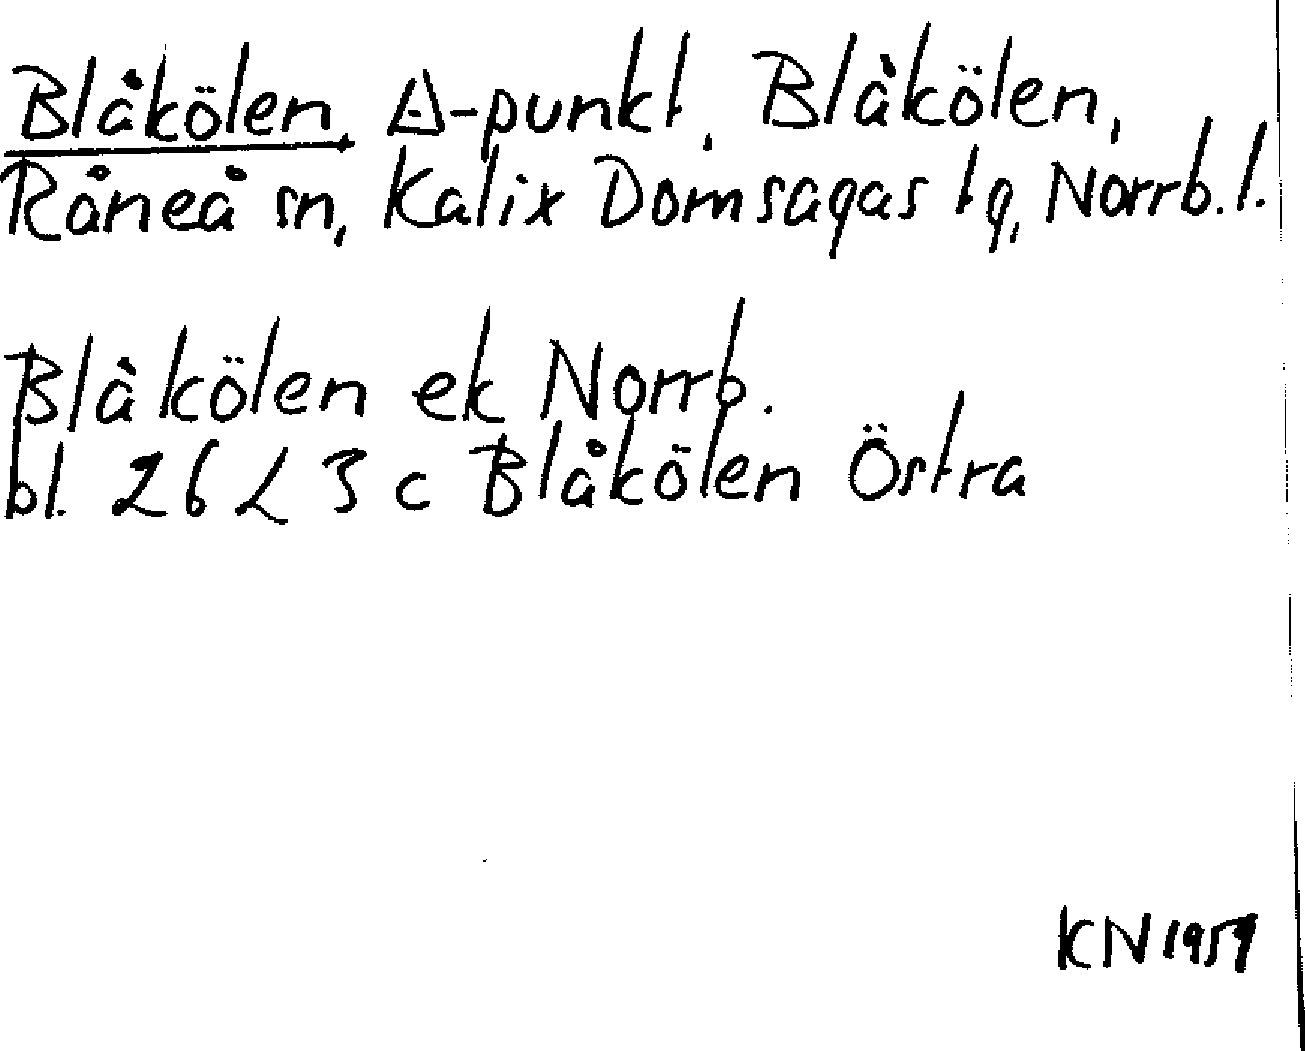 Blåkölen, △-punkt, Blåkölen,
Råneå sn, Kalix Domsagas tg, Norrb. l.
Blåkölen ek Norrb.
bl. 26 L 3 c Blåkölen Östra
KN 1959